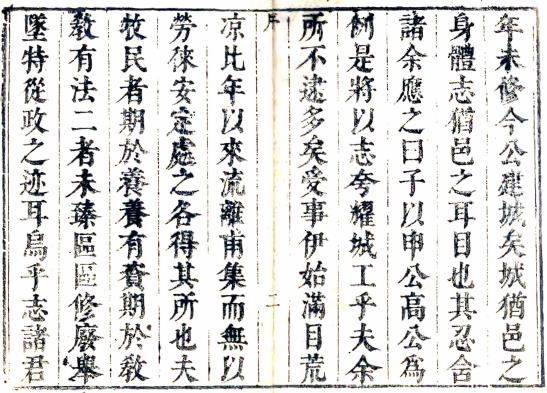 年未修今公建城矣城猶邑之
身體志猶邑之耳目也其忍舍
諸余應之曰子以申公高公為
例是將以志夸耀城工乎夫余
所不逮多矣受事伊始滿目荒
序
二
凉比年以來流離甫集而無以
勞徠安定處之各得其所也夫
牧民者期於養養有資期於教
教有法二者未臻區區修廢舉
墜特從政之迹耳烏乎志諸君